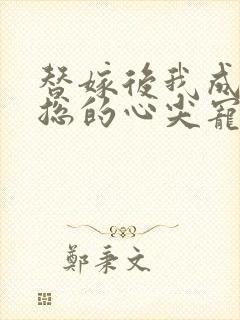 替嫁後我成
總的心尖寵
鄭秉文